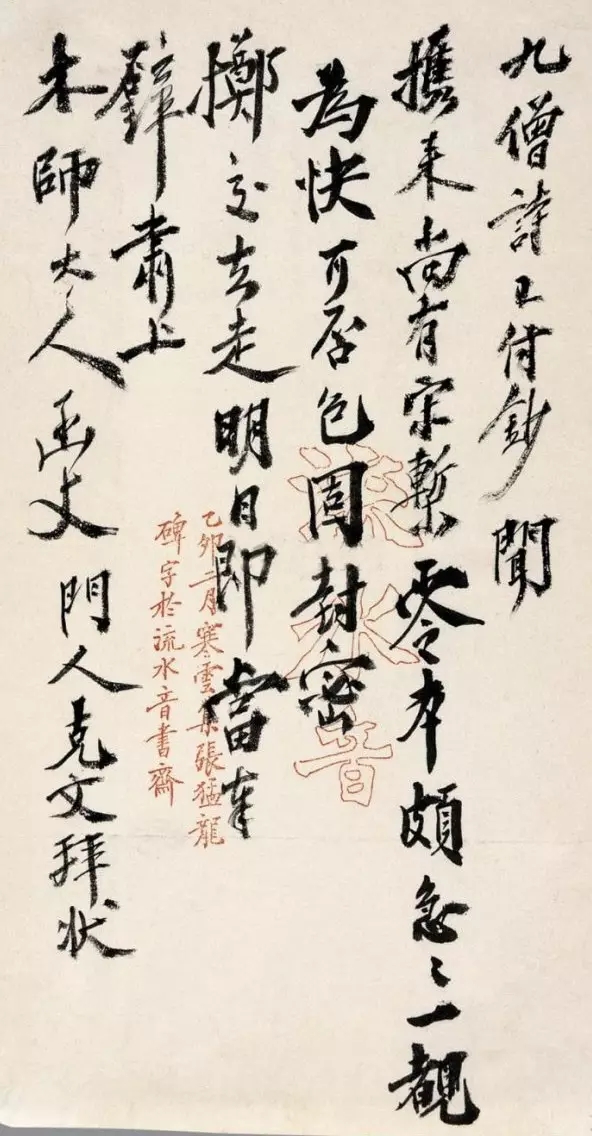 九僧詩已付鈔聞
攜来尚有宋槧零本頗急〻一覩
為快可否包固封密
擲交去走明日即當奉
璧肅上
木師大人函丈門人克文拜狀
流水音
乙卯二月寒雲集張猛龍
碑字於流水音書齋